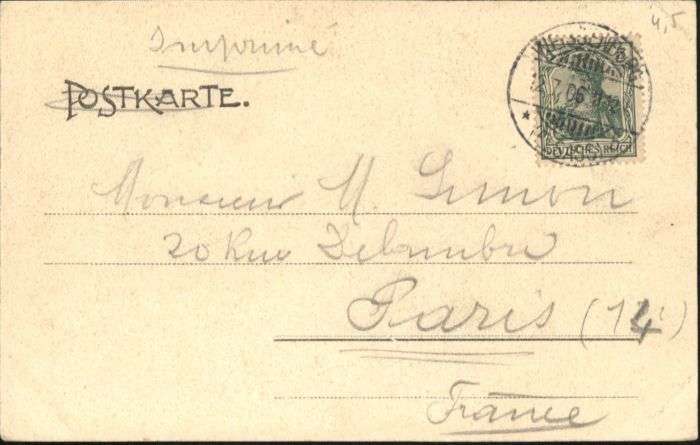 4,5
Imprimé
POSTKARTE.
7.06
DEUTSCHES REICH
Monsieur M. Simon
20 Rue Delambre
Paris (14)
France